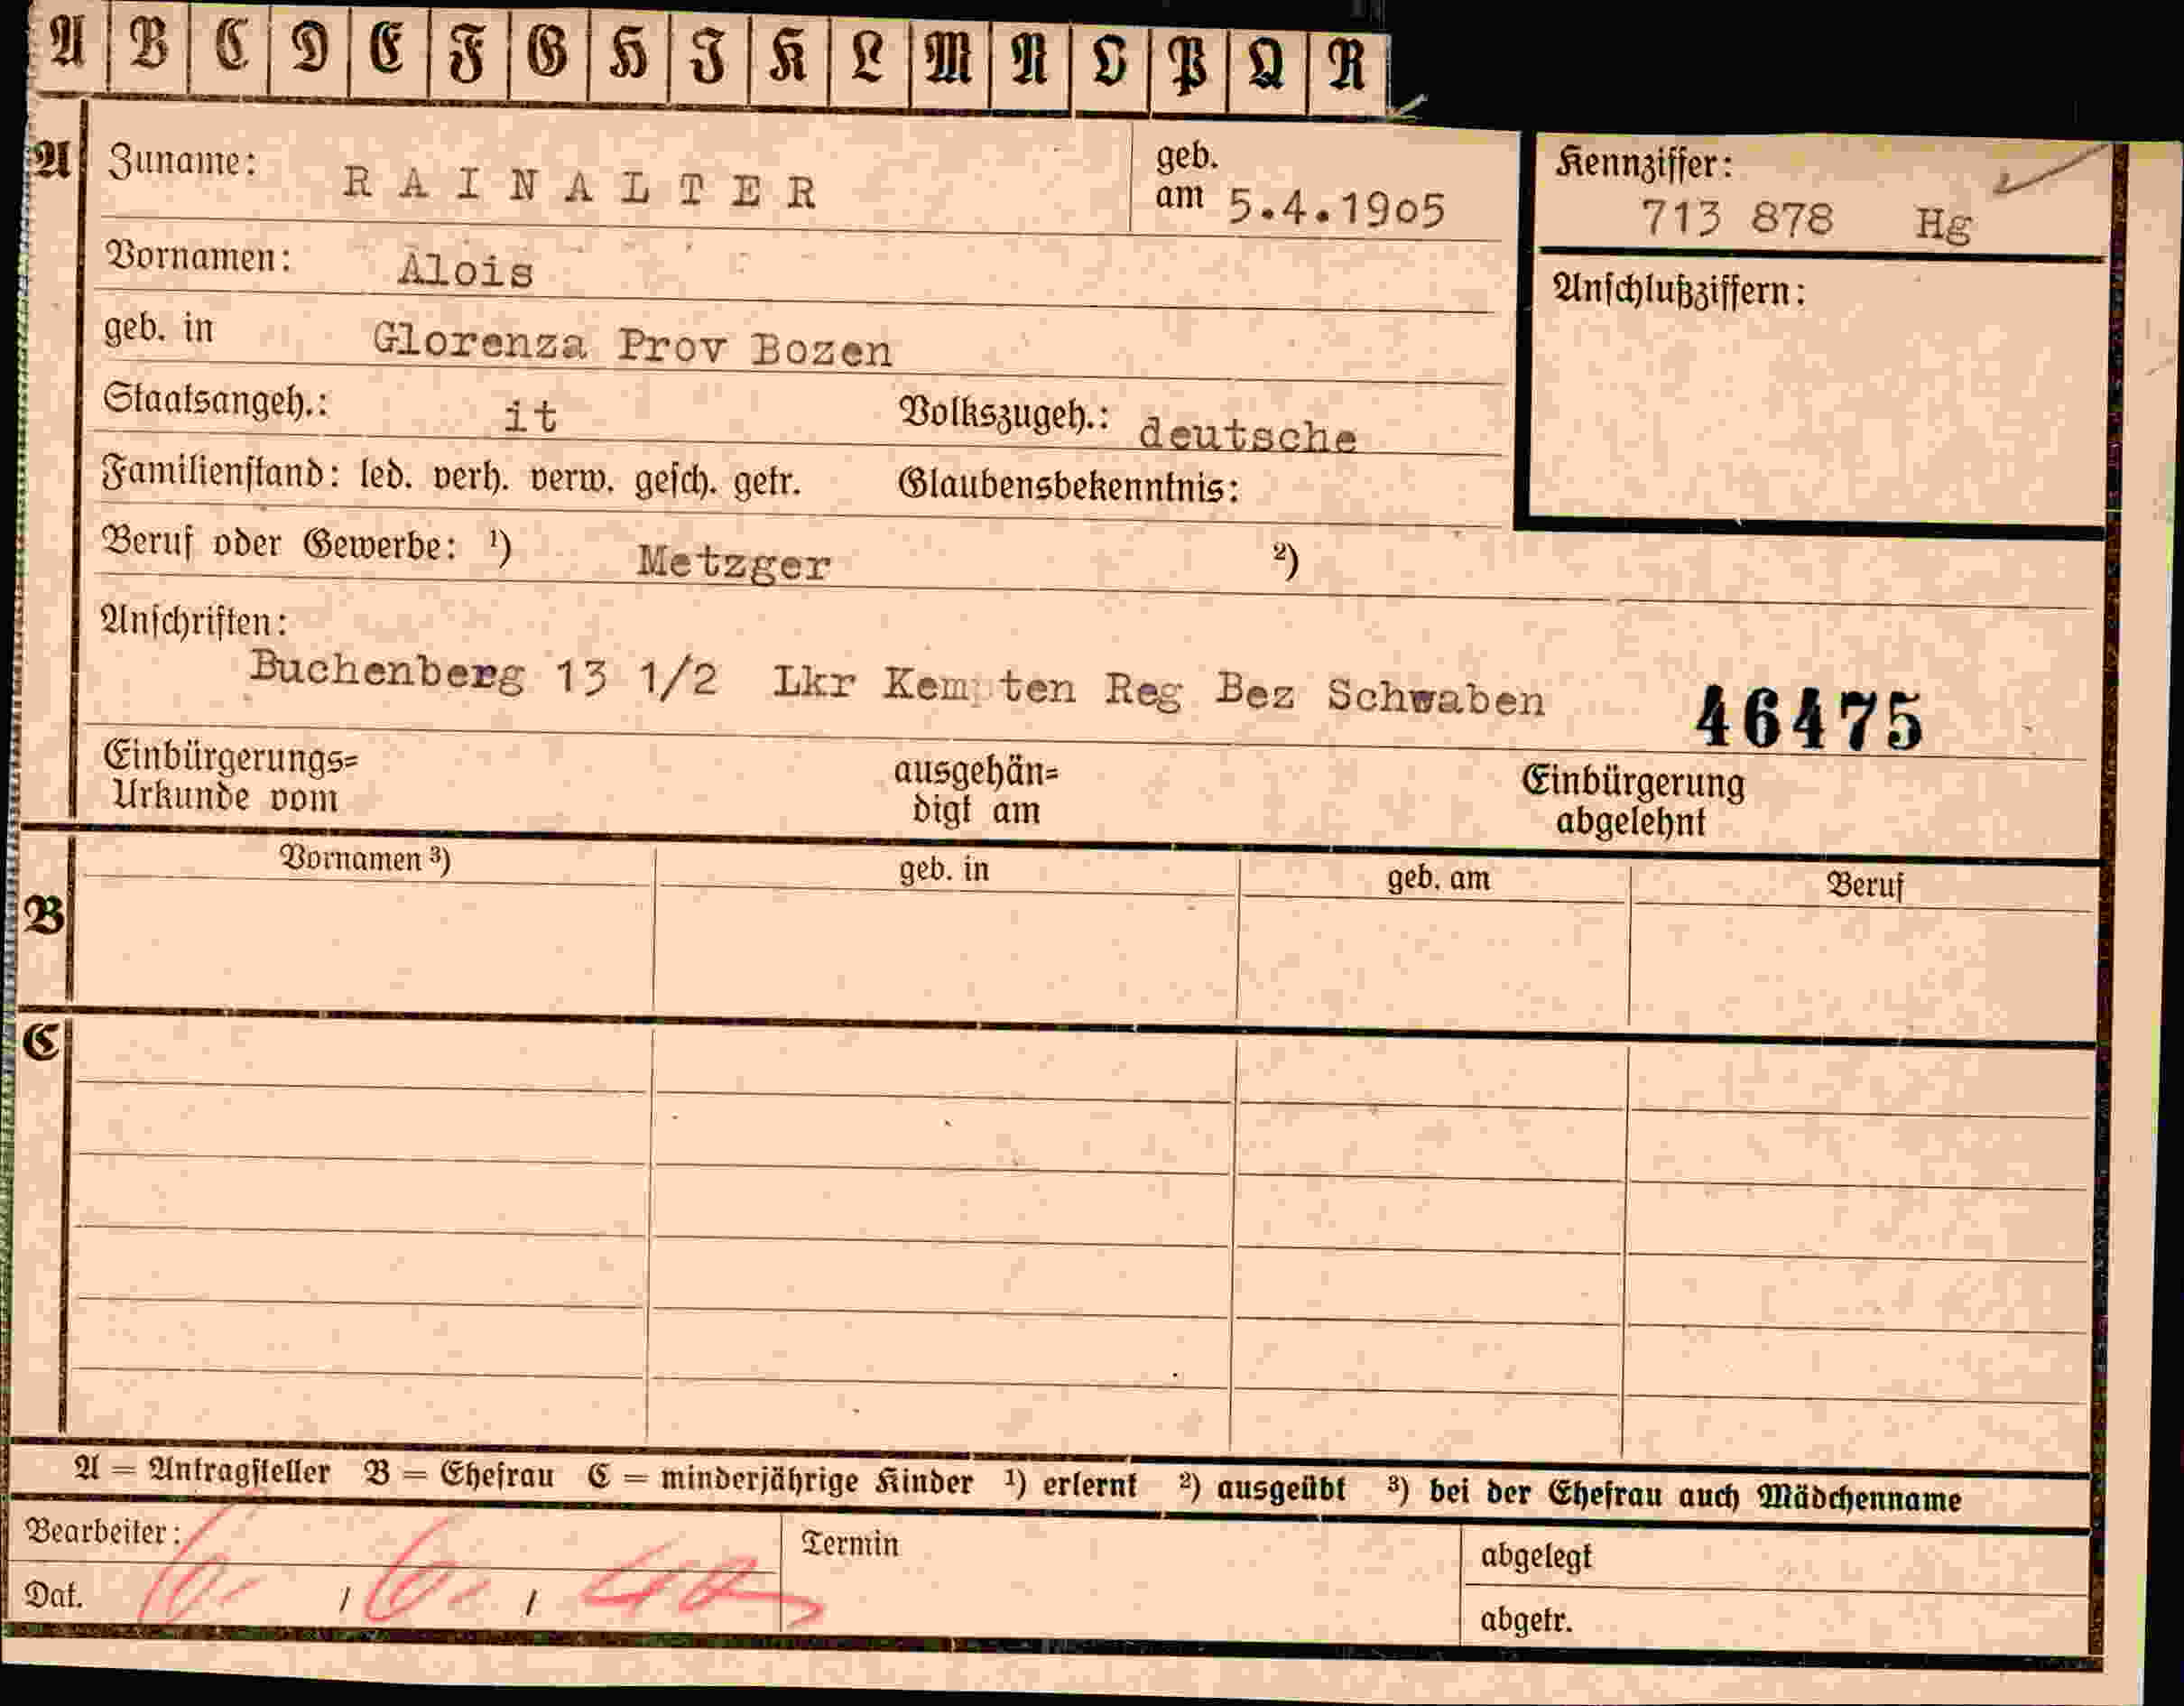 A B C D E F G H I K L M N O P Q R
A Zuname: RAINALTER geb. am 5.4.1905 Kennziffer: 713 878 Hg
Vornamen: Alois Anschlußziffern:
geb. in Glorenza Prov Bozen
Staatsangeh.: it Volkszugeh.: deutsche
Familienstand: led. verh. verw. gesch. getr. Glaubensbekenntnis:
Beruf oder Gewerbe: ¹) Metzger ²)
Anschriften:
Buchenberg 13 1/2 Lkr Kempten Reg Bez Schwaben 46475
Einbürgerungs= ausgehän= Einbürgerung
Urkunde vom digt am abgelehnt
Vornamen ³) geb. in geb. am Beruf
B
C
A = Antragsteller B = Ehefrau C = minderjährige Kinder ¹) erlernt ²) ausgeübt ³) bei der Ehefrau auch Mädchenname
Bearbeiter: Termin abgelegt
Dat. 6. / 6. / 40 abgetr.